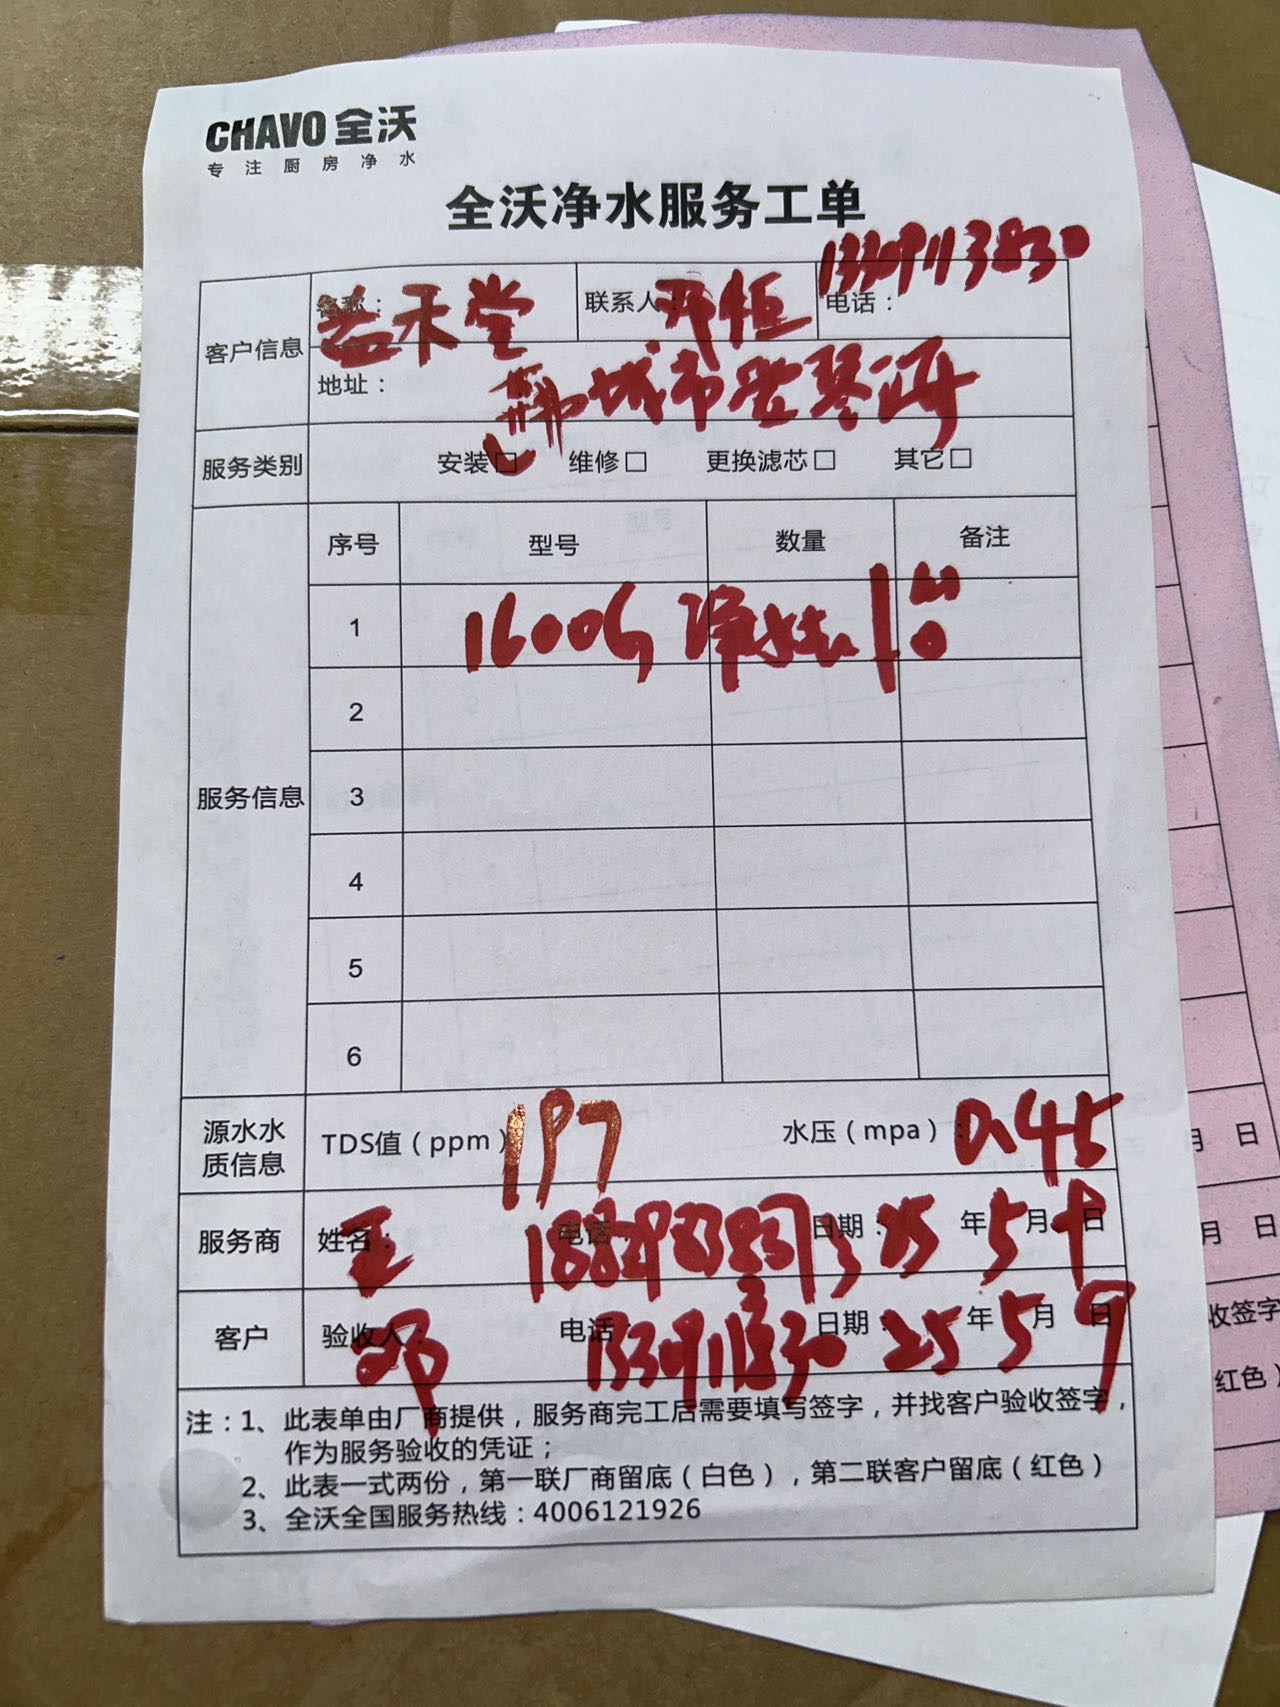 CHAVO 全沃
专注厨房净水
全沃净水服务工单
客户信息
名称：益禾堂
联系人：邓恒
电话：13309113830
地址：韩城市
服务类别
安装□ 维修□ 更换滤芯□ 其它□
服务信息
序号 型号 数量 备注
1 1600G 净水 1台
2
3
4
5
6
源水水质信息
TDS值（ppm） 197
水压（mpa）：0.45
服务商
姓名：王
电话
日期：25年5月
客户
验收人：邓
电话 13309113830
日期：25年5月9日
注：1、此表单由厂商提供，服务商完工后需要填写签字，并找客户验收签字，
作为服务验收的凭证；
2、此表一式两份，第一联厂商留底（白色），第二联客户留底（红色）
3、全沃全国服务热线：4006121926
月 日
月 日
收签字
红色）